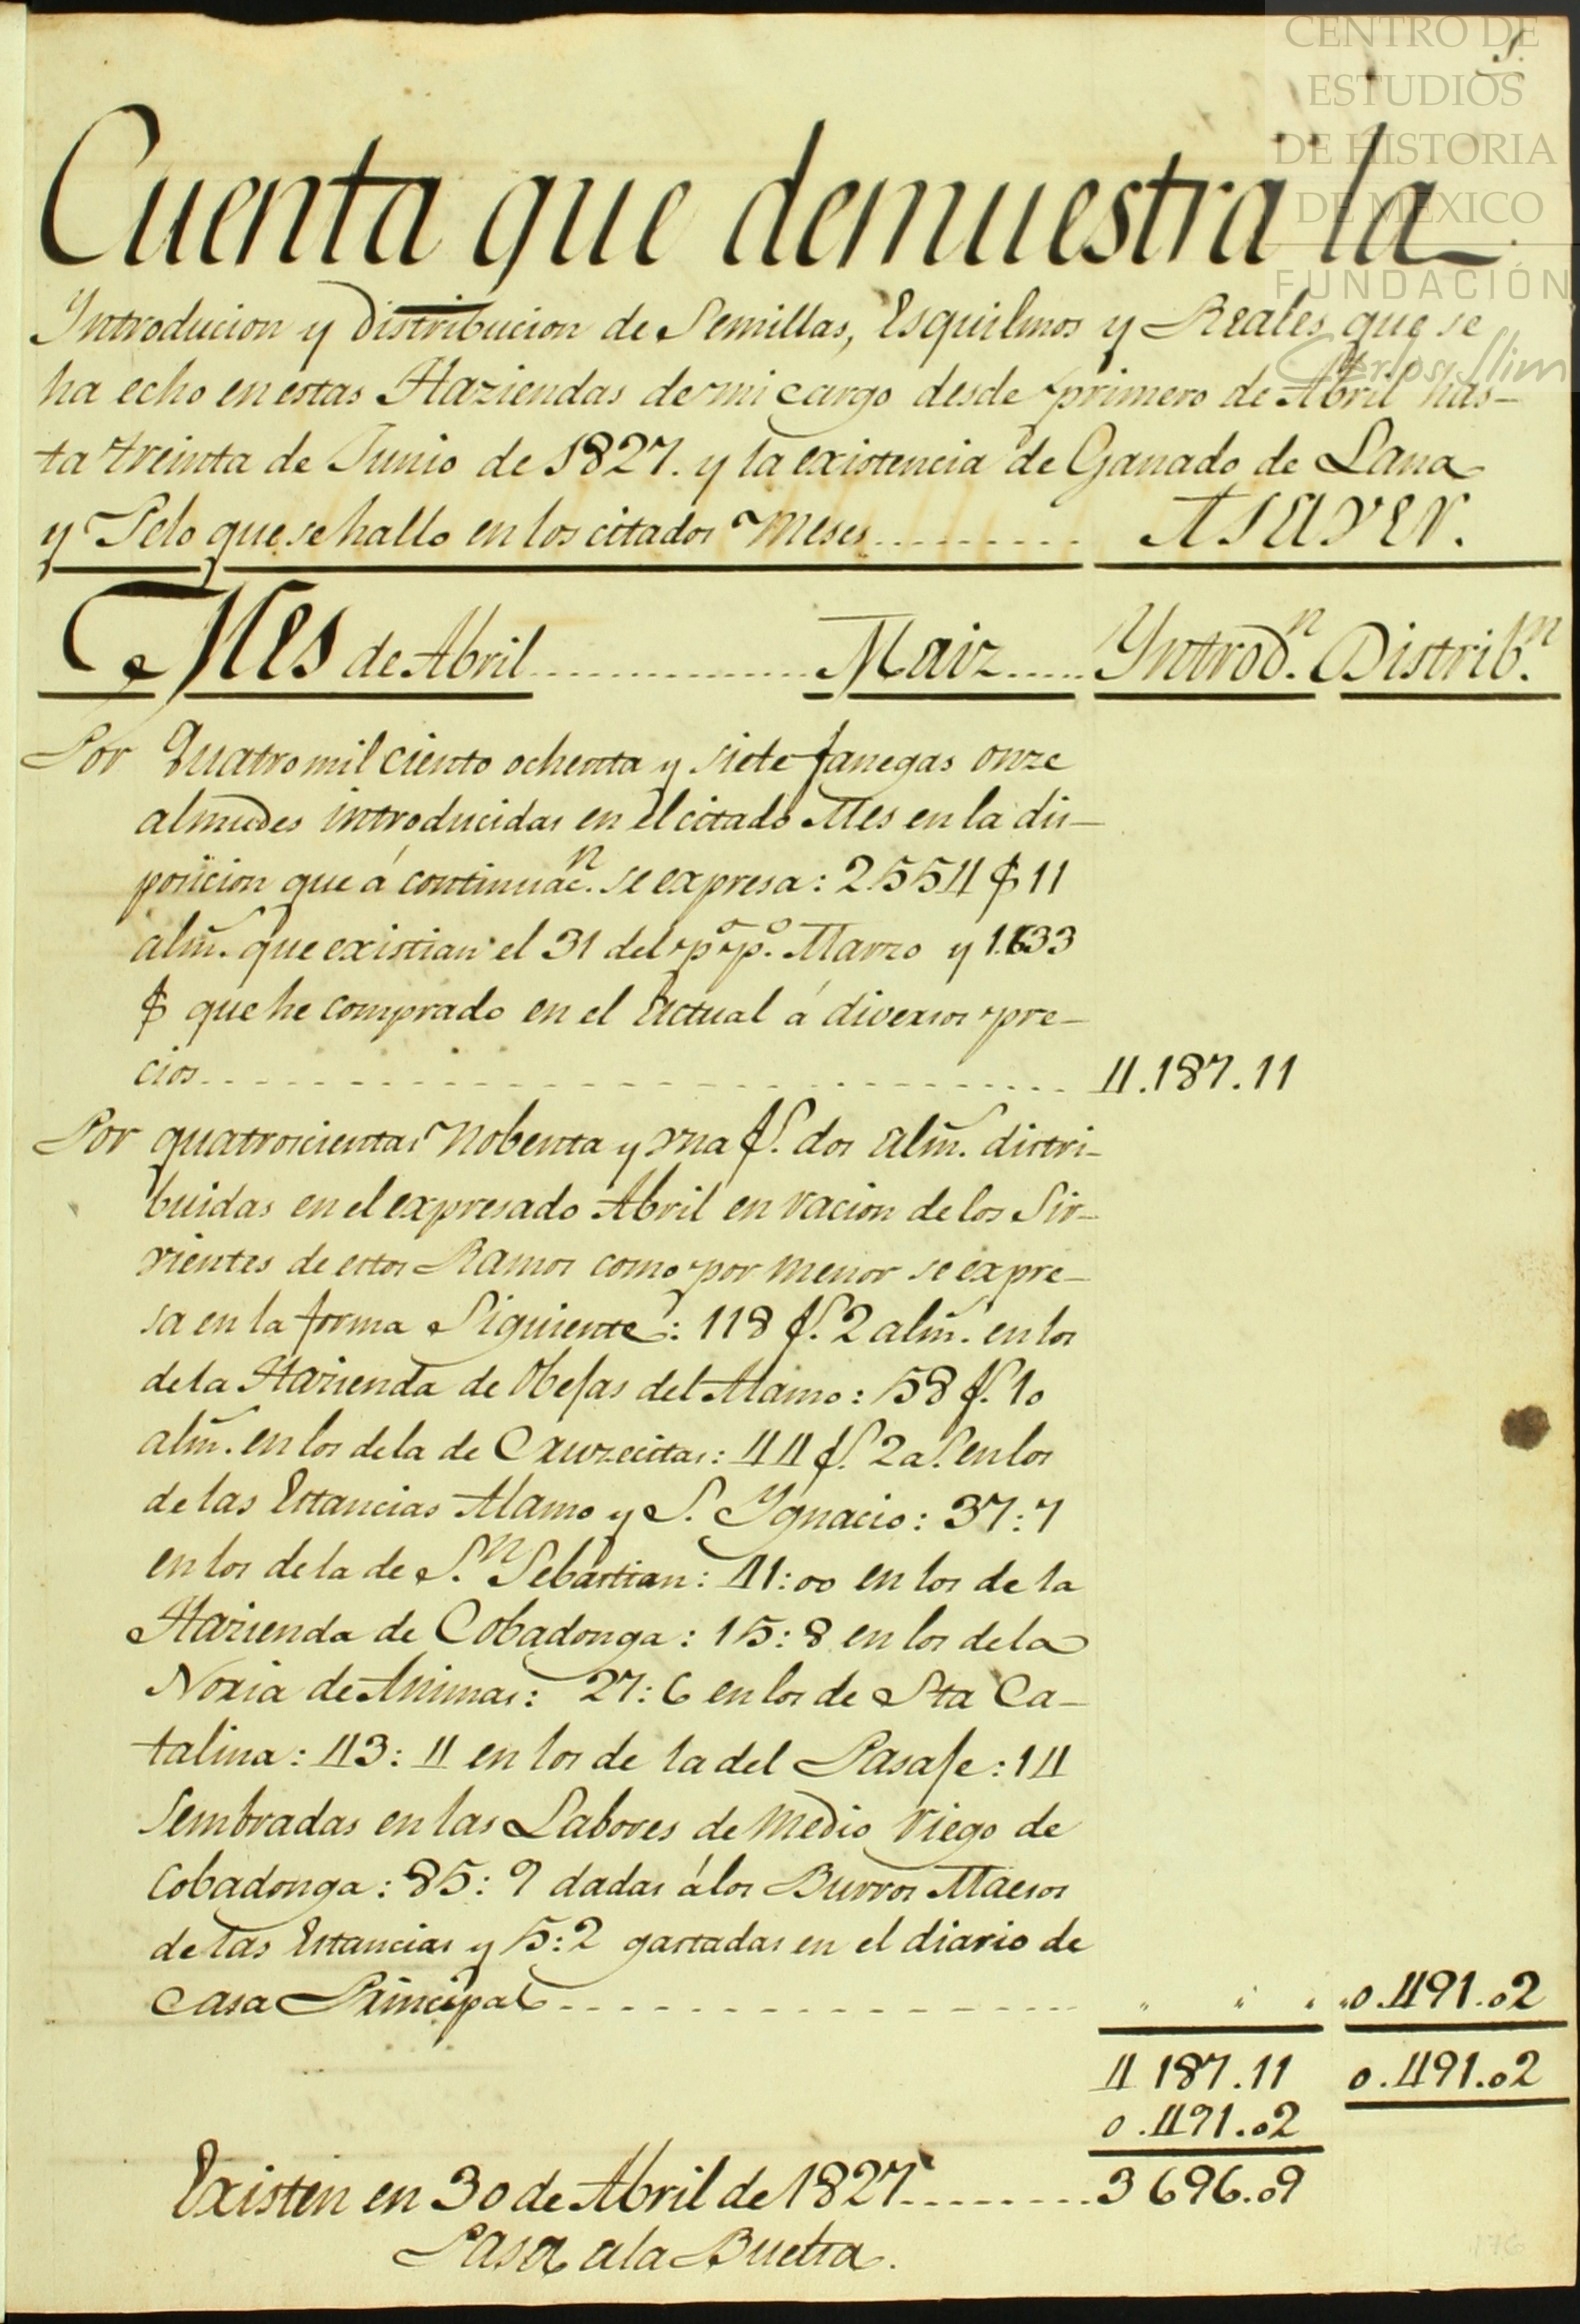 CENTRO DE
ESTUDIOS
DE HISTORIA
DE MÉXICO
FUNDACIÓN
Carlos Slim
1.
Cuenta que demuestra la
Introducion y Distribucion de Semillas, Esquilmos y Reales que se
ha echo en estas Haziendas de mi cargo desde primero de Abril has-
ta treinta de Junio de 1827. y la existencia de Ganado de Lana
y Pelo que se hallo en los citados Meses......... ASAVER.
Mes de Abril............... Maiz..... Yntrod.n Distrib.n
Por Quatro mil ciento ochenta y siete fanegas onze
almudes introducidas en el citado Mes en la dis-
posicion que á continuac.n se expresa: 2.554 f 11
alm.s que existian el 31 del p.o p.o Marzo y 1.633
f que he comprado en el Actual á diversos pre-
cios............................ 4.187.11
Por quatrosientas Nobenta y vna f.s dos alm.s distri-
buidas en el expresado Abril en racion de los Sir-
vientes de estos Ramos como por menor se expre-
sa en la forma Siguiente: 118 f.s 2 alm.s en los
de la Hazienda de Obejas del Alamo: 58 f.s 10
alm.s en los de la de Cruzecitas: 44 f.s 2 a.s en los
de las Estancias Alamo y S. Ygnacio: 37:7
en los de la de S.n Sebastian: 41:00 en los de la
Hazienda de Cobadonga: 15:8 en los de la
Noria de Animas: 27:6 en los de Sta Ca-
talina: 43:4 en los de la del Pasaje: 14
Sembradas en las Labores de Medio riego de
Cobadonga: 85:9 dadas á los Burros Maesos
de las Estancias y 5:2 gastadas en el diario de
Casa Principal.................... " " " "0.491.02
4 187.11 0.491.02
0.491.02
Existen en 30 de Abril de 1827.........3 696.09
Pasa a la Buelta.
176